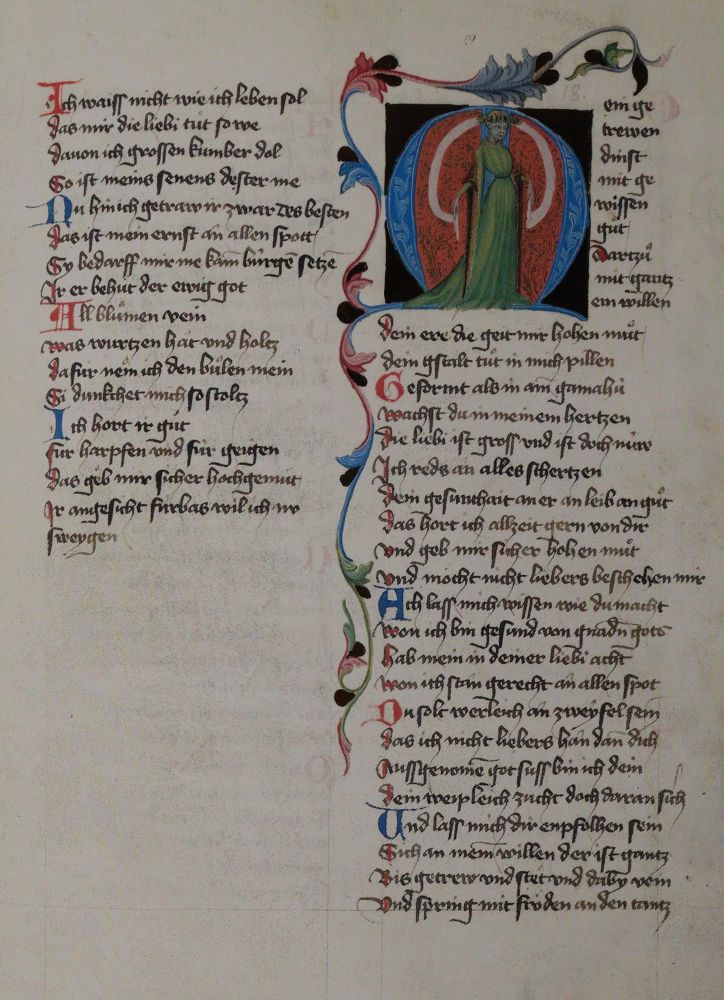 Ich waiss nicht wie ich leben sol
das mir die liebi tůt so we
dauon ich grossen kumber dol
So ist meins senens dester me
Nu hin ich getraw ir zwar des besten
das ist mein ernst an allen spott
Sy bedarff mir me kain bürgē setzē
Ir er behüt der ewig got
All blůmen vein
was wurtzen hat vnd holtz
dafur nem ich den bůlen mein
Si dunkchet mich so stoltz
Ich hort ir gůt
für harpfen vnd für geigen
das geb mir sicher hochgemüt
Ir angesicht fürbas wil ich nv
sweygen
18.
Mein ge
trewen
dinst
mit ge
wissen
gůt
dartzů
mit gantz
em willen
dein ere die geit mir hohen můt
dein gstalt tůt in mich pillen
Geformt als in ain gamahü
wachst du in meinem hertzen
die liebi ist gross vnd ist doch nüw
Ich reds an alles schertzen
dein gesunthait an er an leib an gůt
das hort ich allzeit gern von dir
vnd geb mir sicher hohen můt
vnd mocht nicht liebers beschehen mir
Ach lass mich wissen wie du macht
won ich bin gesund von gnadn gots
hab mein in deiner liebi acht
won ich stan gerecht an allen spot
Du solt werleich an zweyfel sein
das ich nicht liebers han dan dich
Aussgenomē got suss bin ich dein
dein weipleich zucht doch daran sich
Und lass mich dir enpfolhen sein
Sich an mein willen der ist gantz
Bis getrew vnd stet vnd daby vein
Vnd spring mit fröden an den tantz